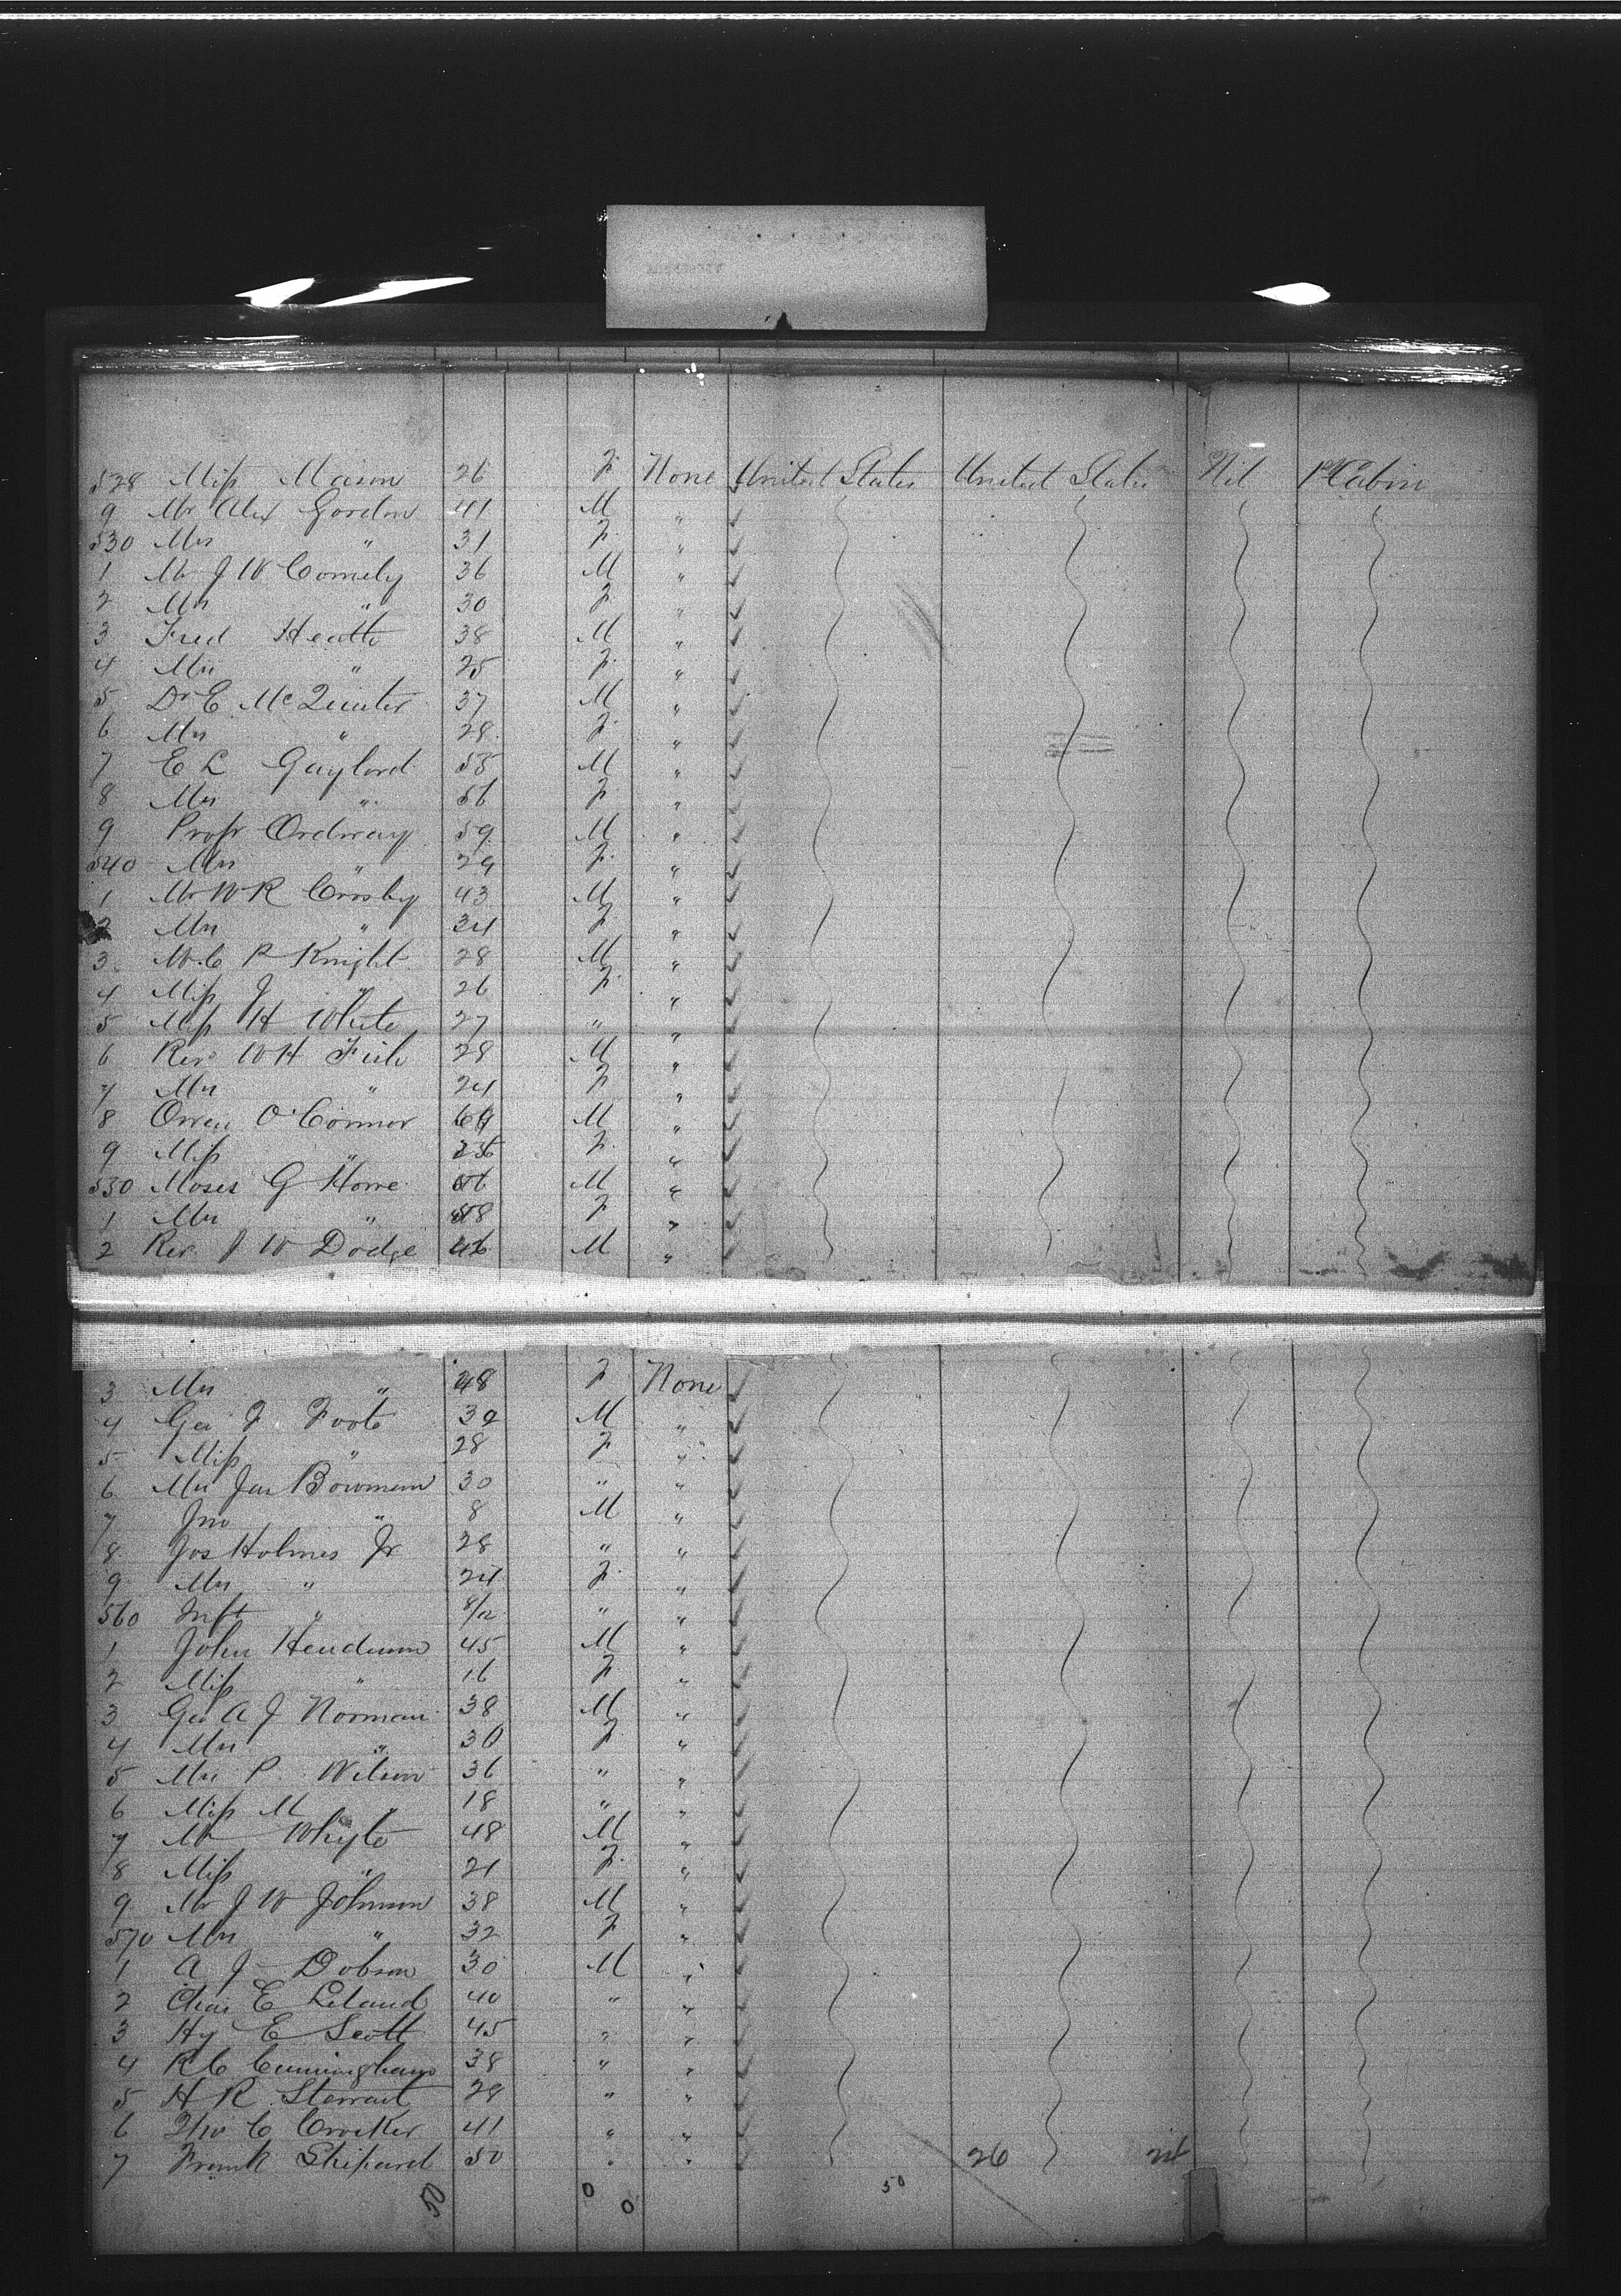 528 Miss Mason 26 F None United States United States Nil 1st Cabin
9 Mr Alex Gordon 41 M "
530 Mrs " 31 F "
1 Mr J W Comely 36 M "
2 Mrs " 30 F "
3 Fred Heath 38 M "
4 Mrs " 25 F "
5 Dr E McQuister 37 M "
6 Mrs " 28 F "
7 E L Gaylord 55 M "
8 Mrs " 56 F "
9 Profr Ordway 59 M "
540 Mrs " 29 F "
1 Mr W R Crosby 43 M "
2 Mrs " 34 F "
3 C P Knight 28 M "
4 Miss J " 26 F "
5 Miss H White 27 " "
6 Rev W H Fish 28 M "
7 Mrs " 24 F "
8 Owen O'Connor M "
9 Miss " F "
550 Moses G Howe M "
1 Mrs " F "
2 Rev J W Dodge M "
3 Mrs " 48 F None
4 Geo F Foote 39 M "
5 Miss " 28 F "
6 Mrs Jas Bowman 30 " "
7 Jno " 8 M "
8 Jos Holmes Jr 28 " "
9 Mrs " 24 F "
560 Inft " 8/12 " "
1 John 45 M "
2 Miss " 16 F "
3 Geo A J Norman 38 M "
4 Mrs " 30 F "
5 Mrs P Wilson 36 " "
6 Miss M " 18 " "
7 Mr Whyte 48 M "
8 Miss " 21 F "
9 Mr J W Johnson 38 M "
570 Mrs " 32 F "
1 A J Dobson 30 M "
2 Chas E Leland 40 " "
3 Hy E Scott 45 " "
4 R C Cunningham 38 " "
5 H R Stewart 28 " "
6 C Crocker 41 " "
7 Frank Shipard 50 " " 26 24
0 0 50